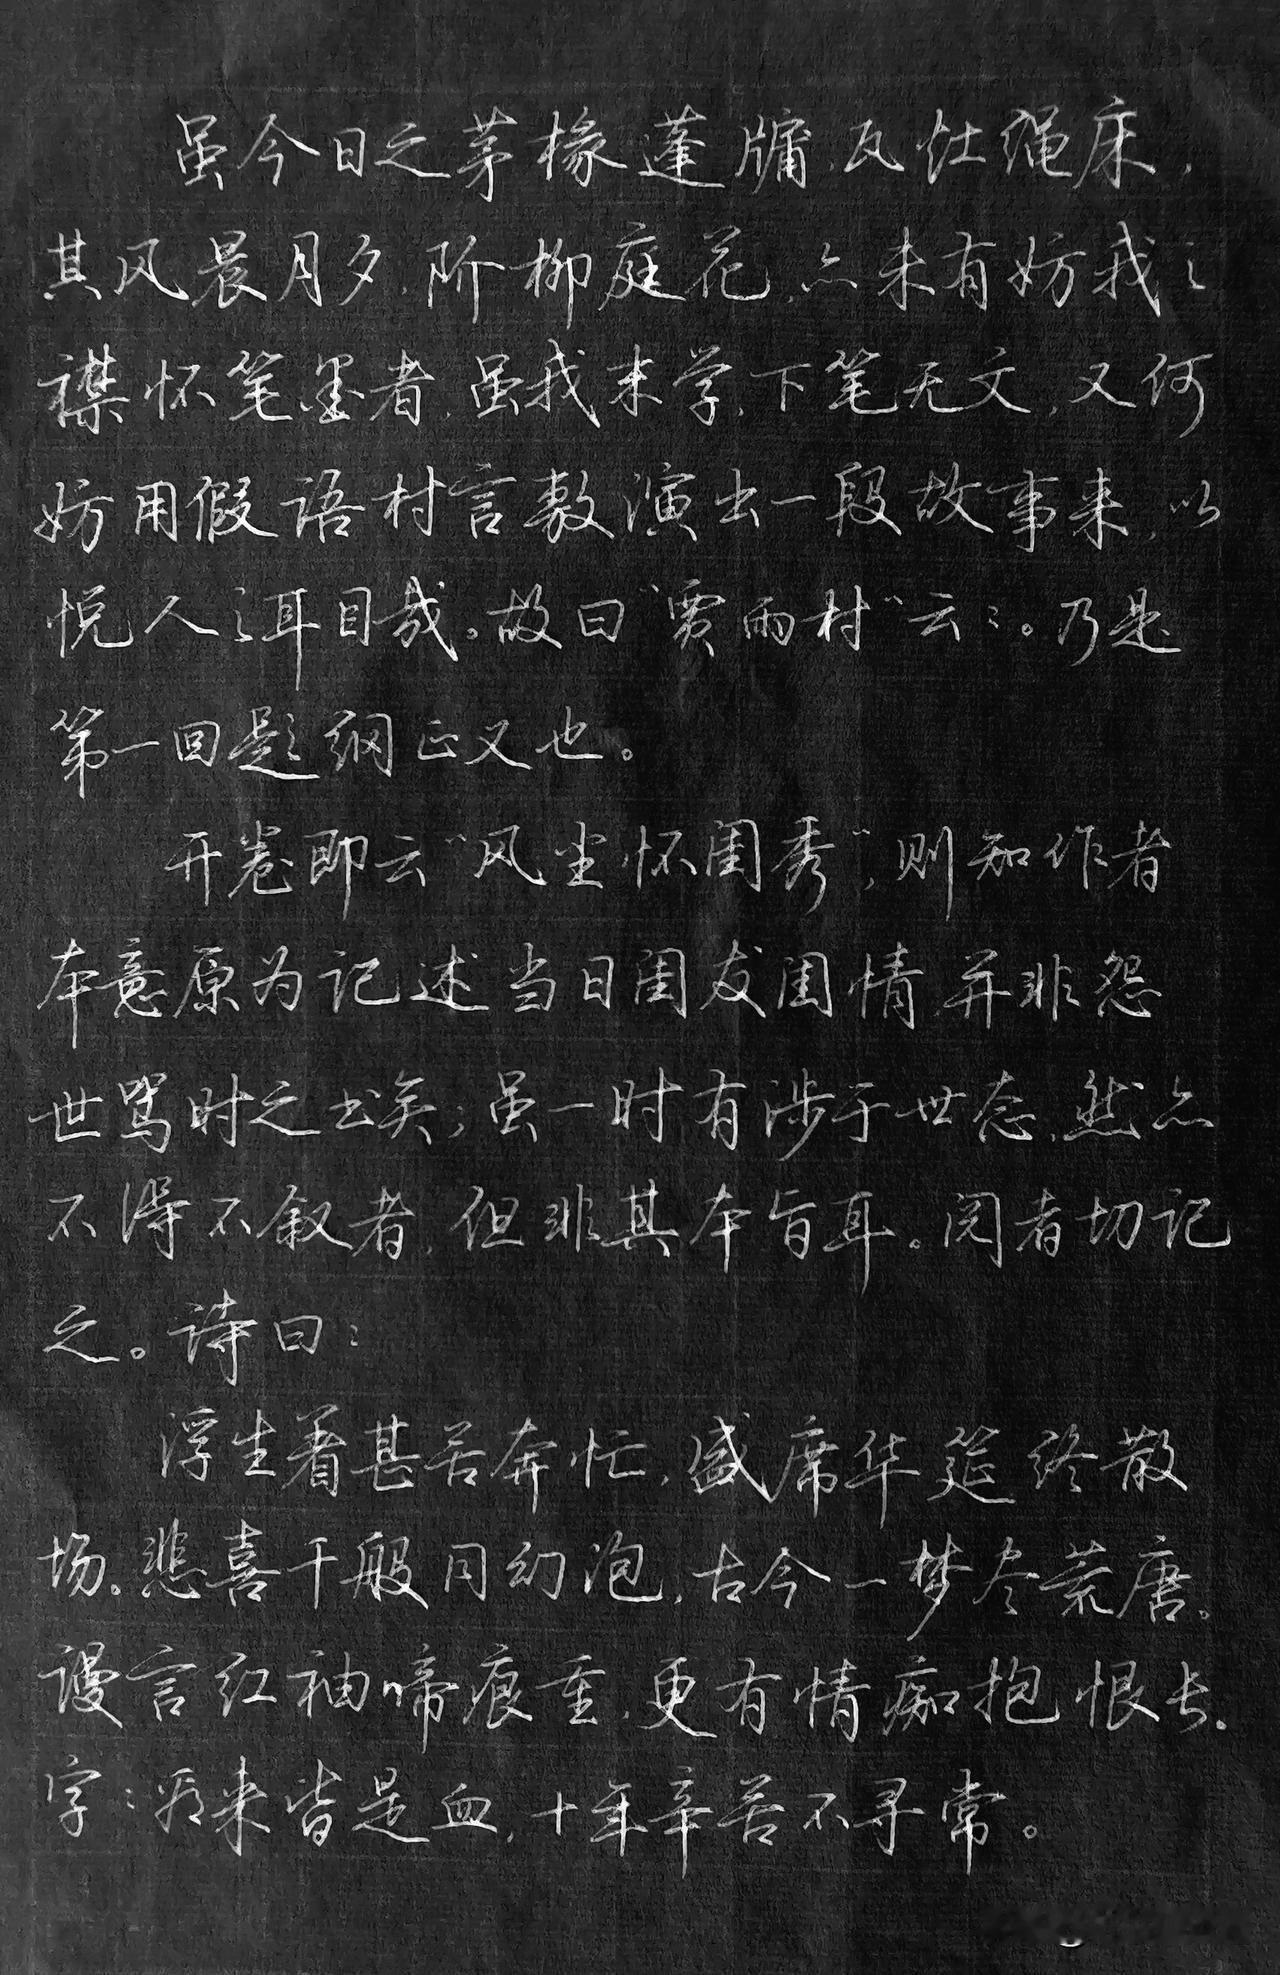 虽今日之茅椽蓬牖,瓦灶绳床,
其风晨月夕,阶柳庭花,亦未有妨我之
襟怀笔墨者,虽我末学,下笔无文,又何
妨用假语村言敷演出一段故事来,以
悦人之耳目哉。故曰“贾雨村”云云。乃是
第一回题纲正义也。
开卷即云“风尘怀闺秀”,则知作者
本意原为记述当日闺友闺情,并非怨
世骂时之书矣;虽一时有涉于世态,然亦
不得不叙者,但非其本旨耳。阅者切记
之。诗曰:
浮生着甚苦奔忙,盛席华筵终散
场。悲喜千般同幻泡,古今一梦尽荒唐。
谩言红袖啼痕重,更有情痴抱恨长。
字字看来皆是血,十年辛苦不寻常。